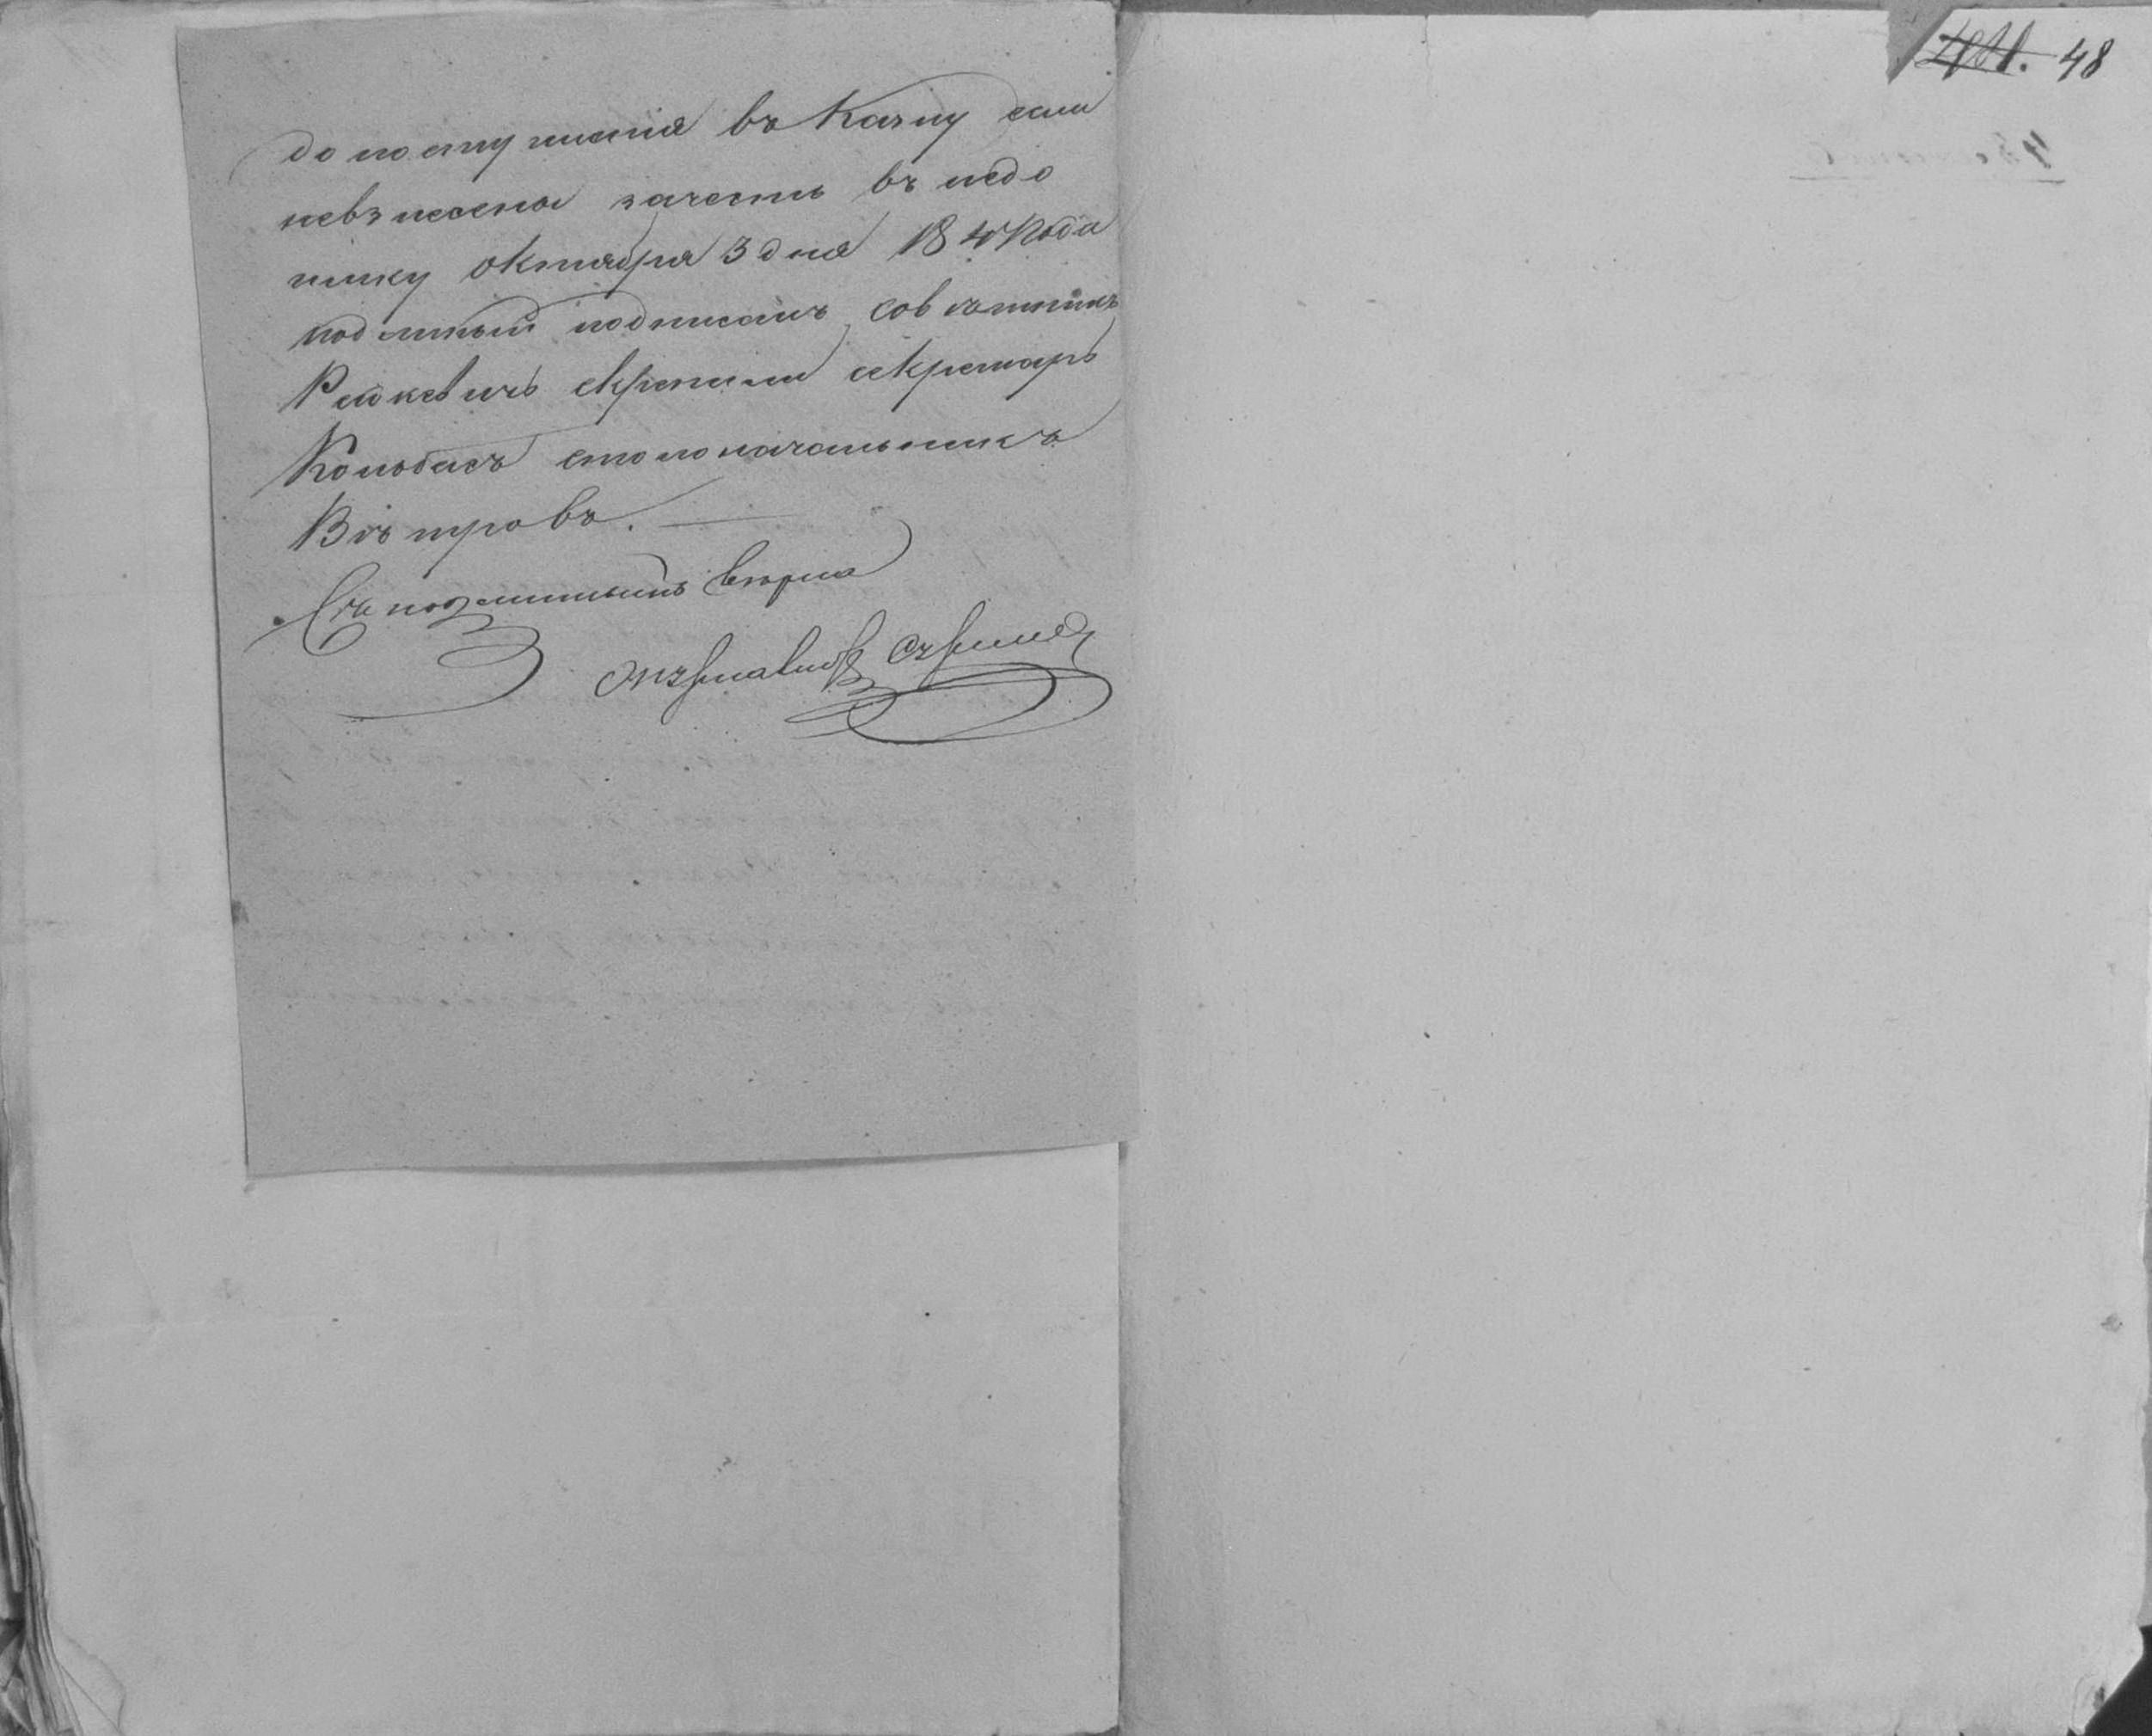 до поступленія въ Казну если
невзнесены зачесть въ недо
имку октября 3 дня 184 года
подлинный подписалъ совѣтникъ
скрепили секретарь
столоначальникъ
Вѣтровъ.
Съ подлиннымъ верна
48